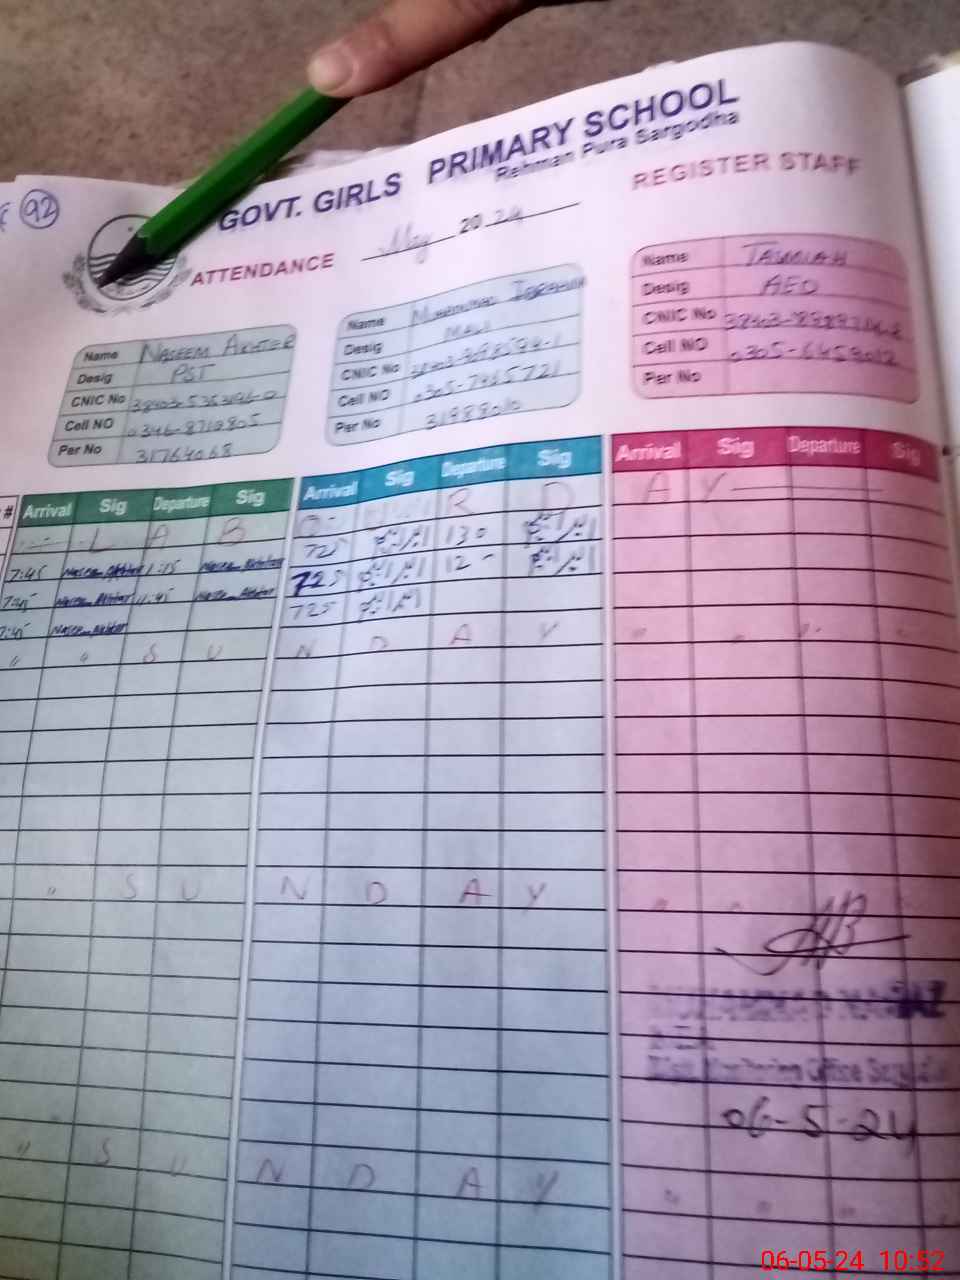 92
GOVT. GIRLS PRIMARY SCHOOL
Rehman Pura Sargodha
ATTENDANCE May 2024 REGISTER STAFF
Name NASEEM AKHTER
Desig PST
CNIC No
Cell NO 0346-8719805
Per No 31764068
Name MUHAMMAD IBRAHIM
Desig MALI
CNIC No
Cell NO 0305-7465721
Per No 31988010
Name TASMIAH
Desig AEO
CNIC No
Cell NO 0305-6459012
Per No
# Arrival Sig Departure Sig Arrival Sig Departure Sig Arrival Sig Departure Sig
L A B O U R D A Y
7:45 Naseem Akhtar 1:15 Naseem Akhtar 725 ابراہیم 130 ابراہیم
7:45 Naseem Akhtar 11:45 Naseem Akhtar 725 ابراہیم 12 ابراہیم
7:45 Naseem Akhtar 725 ابراہیم
" " S U N D A Y " " " "
" S U N D A Y " "
Monitoring Office
06-5-24
" S U N D A Y " " " "
06-05-24 10:52